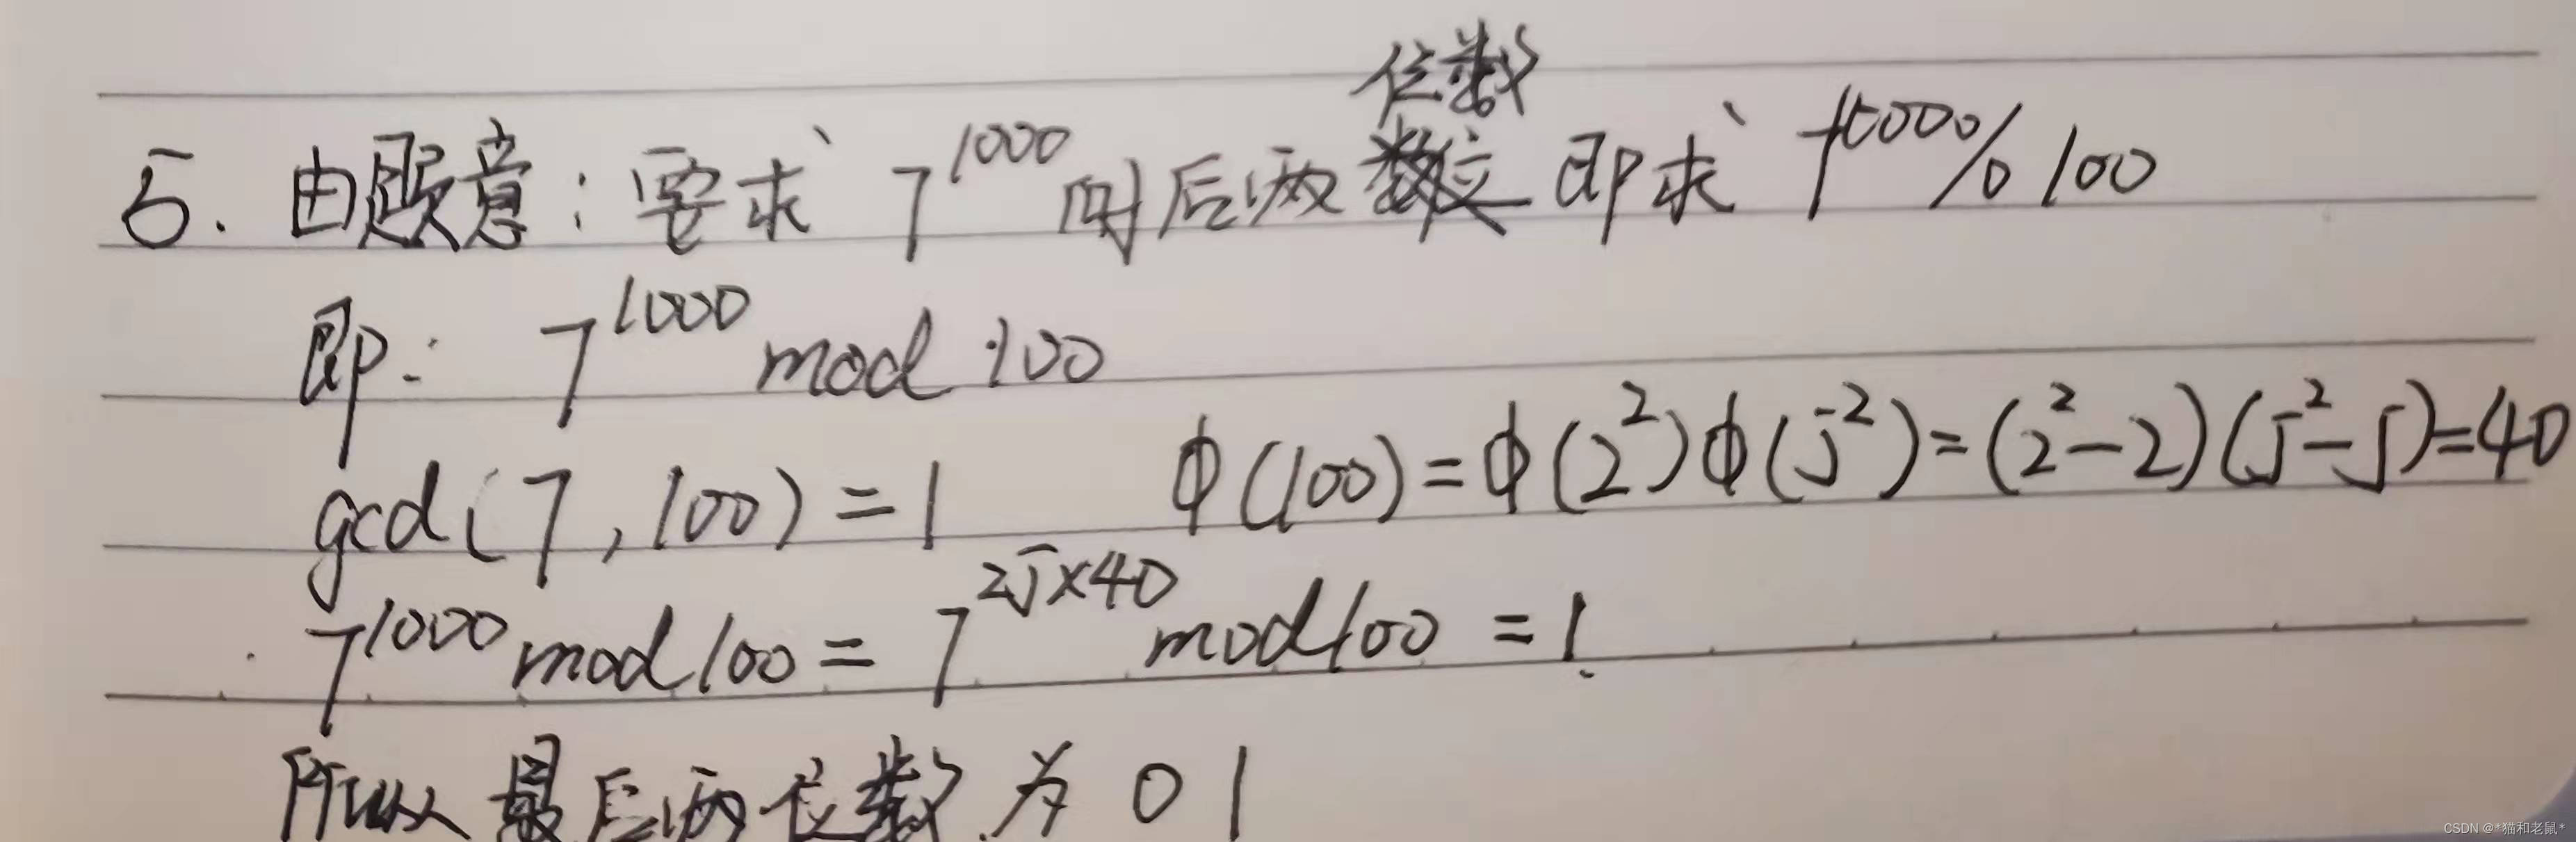 5. 由题意：要求 7^1000 的后两位数 即求 7^1000 % 100
即： 7^1000 mod 100
gcd(7,100)=1 ϕ(100)=ϕ(2^2)ϕ(5^2)=(2^2-2)(5^2-5)=40
7^1000 mod 100 = 7^25×40 mod 100 = 1.
所以最后两位数为 01
CSDN @*猫和老鼠*